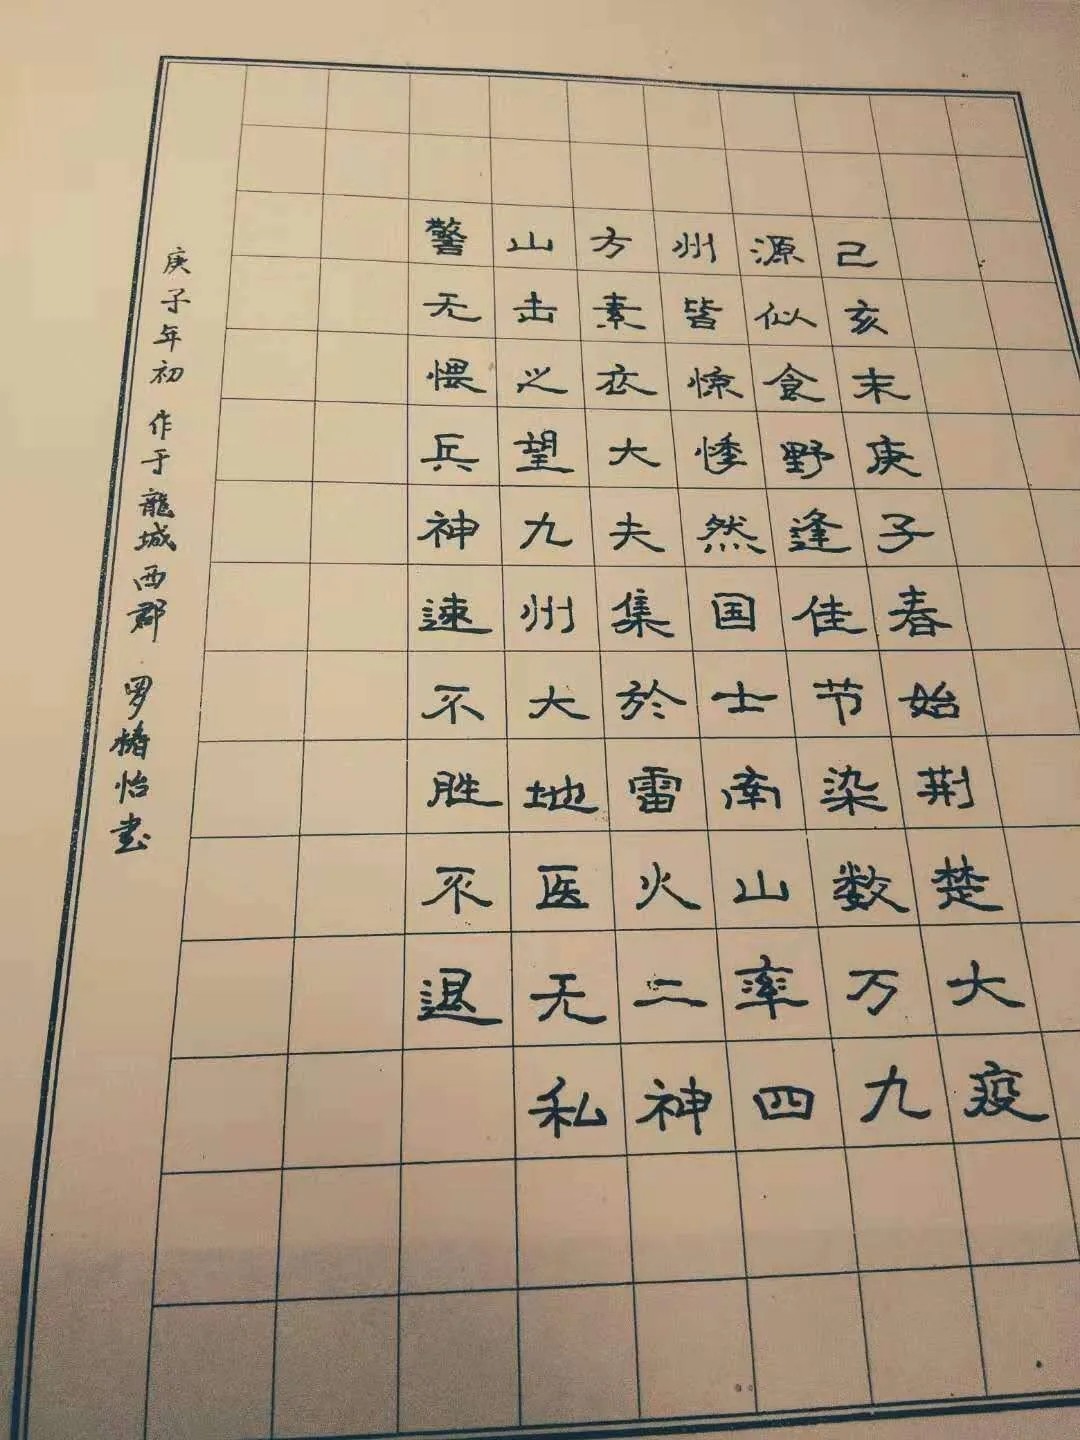 己亥末庚子春始荆楚大疫
源似食野逢佳节染数万九
州皆惊悸然国士南山率四
方素衣大夫集於雷火二神
山击之望九州大地医无私
警无惧兵神速不胜不退
庚子年初 作于龍城西郡 罗椿怡书